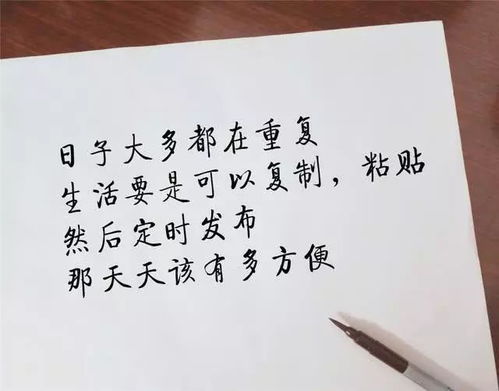 日子大多都在重复
生活要是可以复制，粘贴
然后定时发布
那天天该有多方便